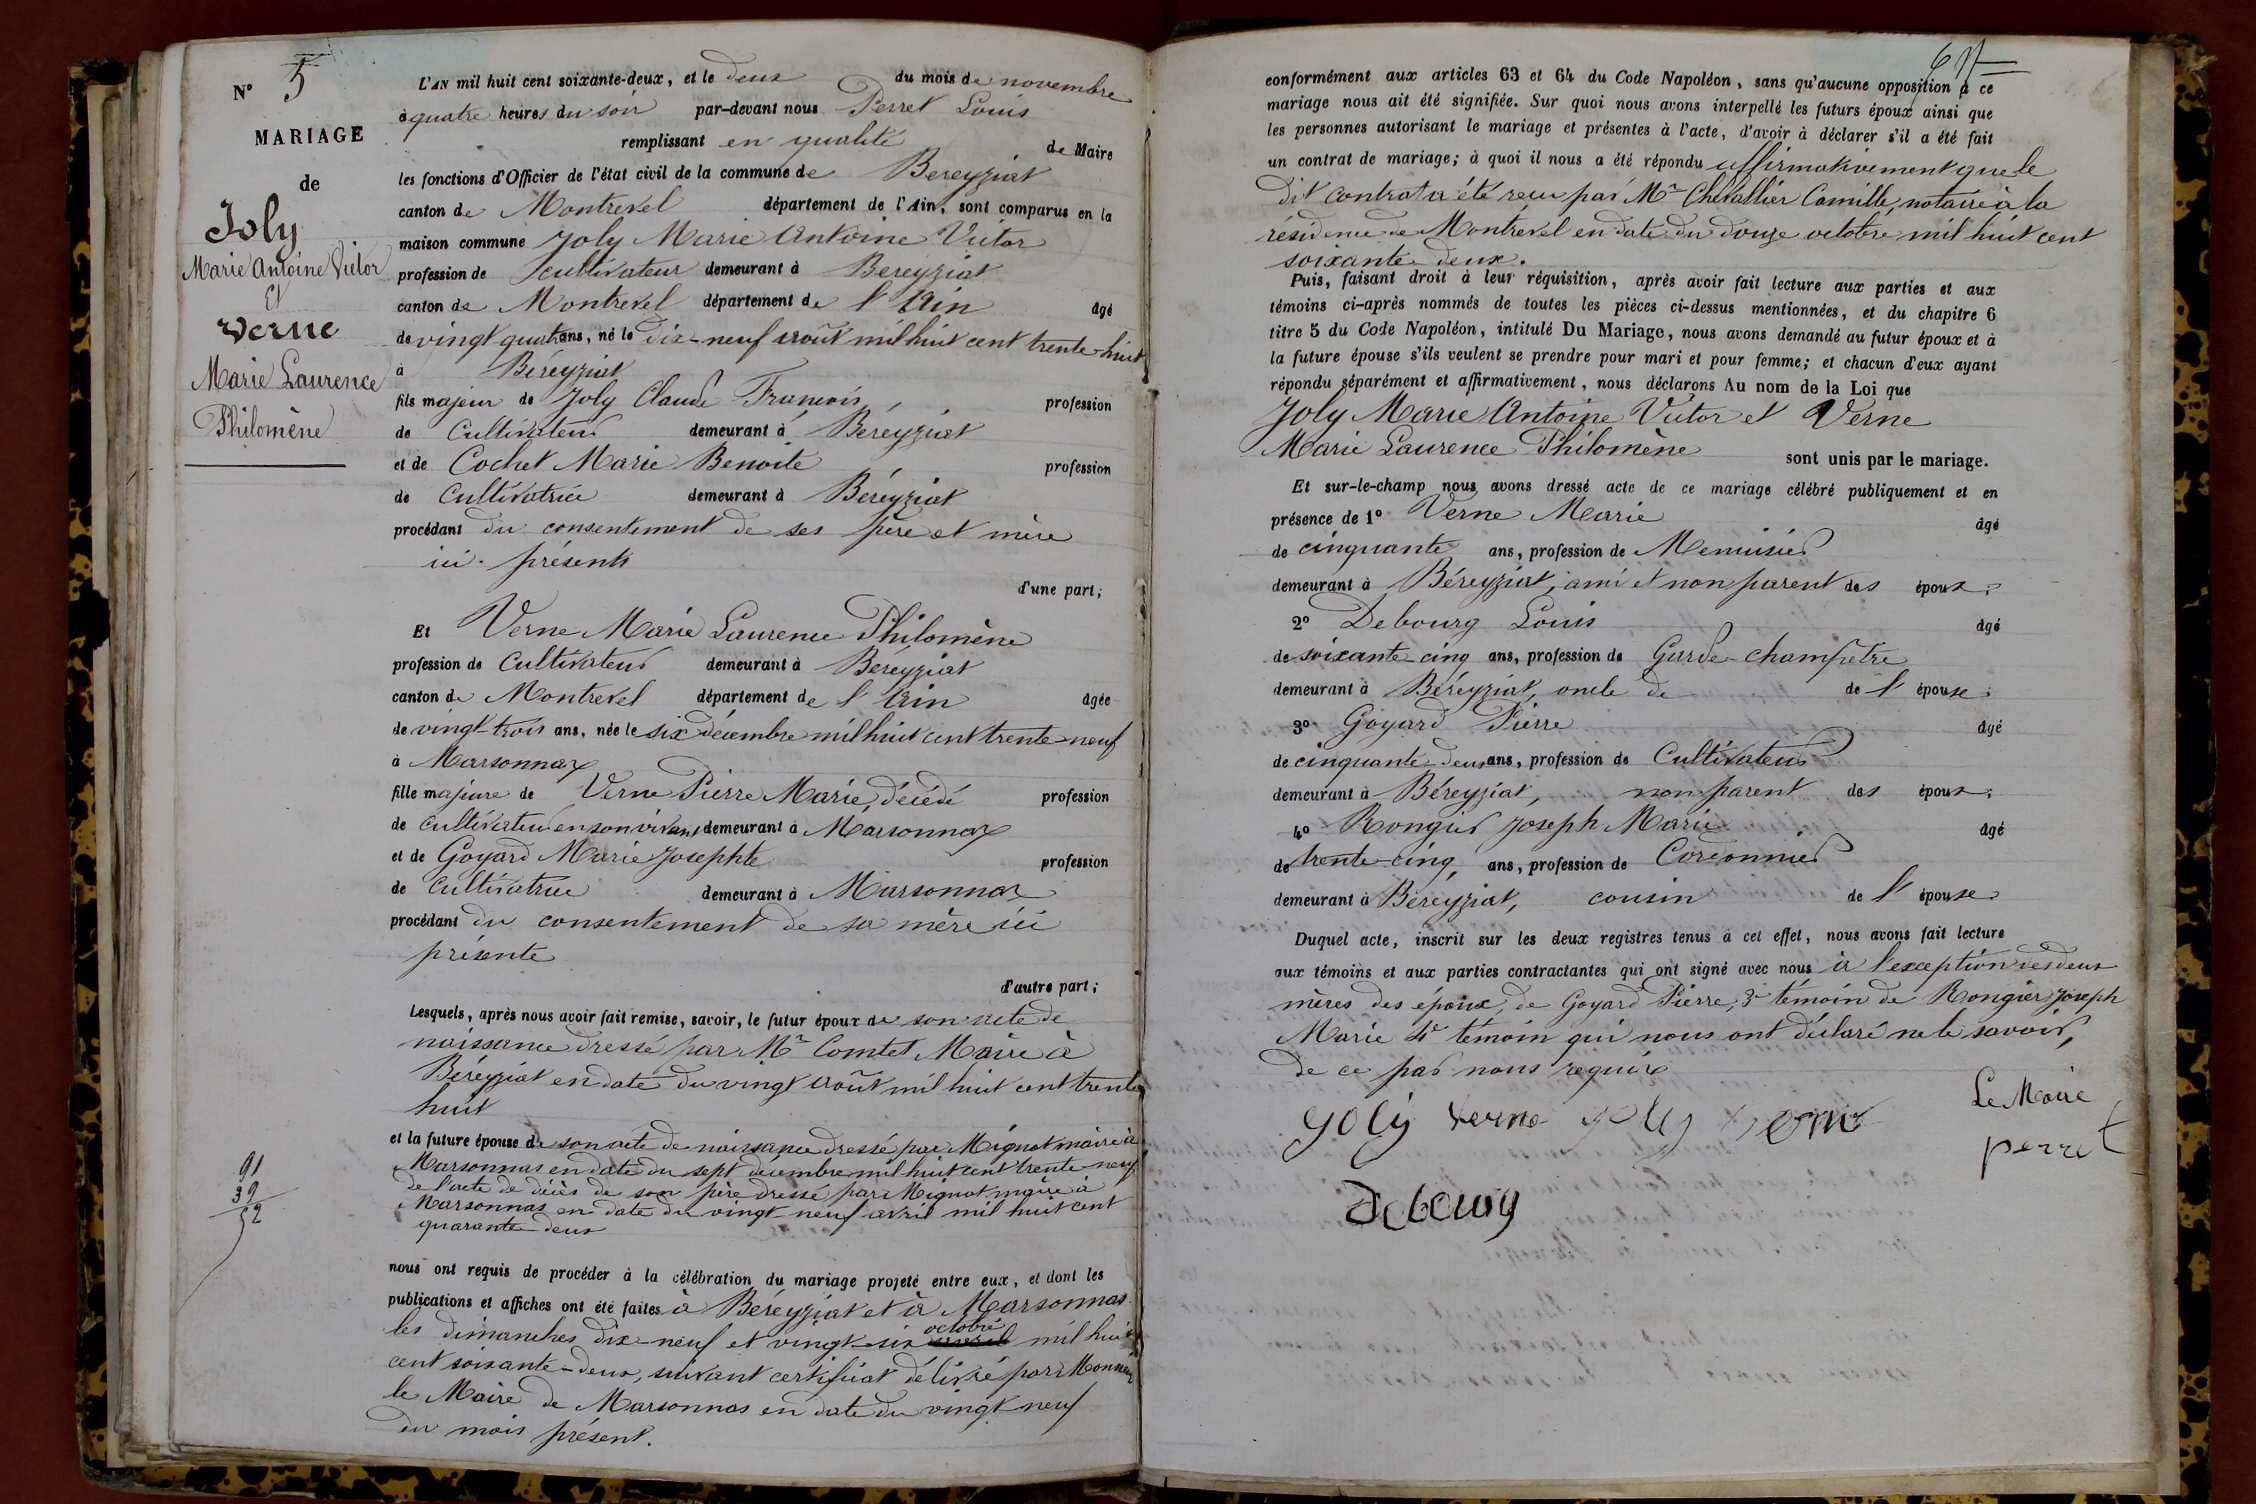 N° 5
MARIAGE
de
Joly
Marie Antoine Victor
Et
Verne
Marie Laurence
Philomène
91
39
52
L'AN mil huit cent soixante-deux, et le deux du mois de novembre
à quatre heures du soir par-devant nous Perret Louis
remplissant en qualité de Maire
les fonctions d'Officier de l'état civil de la commune de Bereyziat
canton de Montrevel département de l'Ain, sont comparus en la
maison commune Joly Marie Antoine Victor
profession de cultivateur demeurant à Bereyziat
canton de Montrevel département de l'Ain âgé
de vingt quatre ans, né le dix-neuf août mil huit cent trente-huit
à Béréyziat
fils majeur de Joly Claude Francois, profession
de Cultivateur demeurant à Béréyziat
et de Cochet Marie Benoite profession
de Cultivatrice demeurant à Béréyziat
procédant du consentement de ses père et mère
ici présents
d'une part;
Et Verne Marie Laurence Philomène
profession de Cultivateur demeurant à Béreyziat
canton de Montrevel département de l'Ain âgée
de vingt-trois ans, née le six décembre mil huit cent trente-neuf
à Marsonnax
fille majeure de Verne Pierre Marie, décédé profession
de cultivateur en son vivant demeurant à Marsonnax
et de Goyard Marie Josephte profession
de cultivatrice demeurant à Marsonnax
procédant du consentement de sa mère ici
présente
d'autre part;
Lesquels, après nous avoir fait remise, savoir, le futur époux de son acte de
naissance dressé par Mr Comtet Maire à
Béréyziat en date du vingt août mil huit cent trente
huit
et la future épouse de son acte de naissance dressé par Mignot maire à
Marsonnas en date du sept décembre mil huit cent trente-neuf
de l'acte de décès de son père dressé par Mignot maire à
Marsonnas en date du vingt neuf avril mil huit cent
quarante deux
nous ont requis de procéder à la célébration du mariage projeté entre eux, et dont les
publications et affiches ont été faites à Béréyziat et à Marsonnas
les dimanches dix-neuf et vingt-six octobre mil huit
cent soixante-deux, suivant certificat délivré par Monsieur
le Maire de Marsonnas en date du vingt neuf
du mois présent.
conformément aux articles 63 et 64 du Code Napoléon, sans qu'aucune opposition à ce
mariage nous ait été signifiée. Sur quoi nous avons interpellé les futurs époux ainsi que
les personnes autorisant le mariage et présentes à l'acte, d'avoir à déclarer s'il a été fait
un contrat de mariage; à quoi il nous a été répondu affirmativement que le
dit contrat a été reçu par Mr Chevallier Camille, notaire à la
résidence de Montrevel en date du douze octobre mil huit cent
soixante-deux.
Puis, faisant droit à leur réquisition, après avoir fait lecture aux parties et aux
témoins ci-après nommés de toutes les pièces ci-dessus mentionnées, et du chapitre 6
titre 5 du Code Napoléon, intitulé Du Mariage, nous avons demandé au futur époux et à
la future épouse s'ils veulent se prendre pour mari et pour femme; et chacun d'eux ayant
répondu séparément et affirmativement, nous déclarons Au nom de la Loi que
Joly Marie Antoine Victor et Verne
Marie Laurence Philomène sont unis par le mariage.
Et sur-le-champ nous avons dressé acte de ce mariage célébré publiquement et en
présence de 1° Verne Marie âgé
de cinquante ans, profession de Menuisier
demeurant à Béreyziat, ami et non parent des époux;
2° Debourg Louis âgé
de soixante-cinq ans, profession de Garde-champêtre
demeurant à Béréyziat, oncle de de l'épouse;
3° Goyard Pierre âgé
de cinquante-deux ans, profession de Cultivateur
demeurant à Béreyziat, non parent des époux;
4° Rongier Joseph Marie âgé
de trente-cinq, ans, profession de Cordonnier
demeurant à Béreyziat, cousin de l'épouse
Duquel acte, inscrit sur les deux registres tenus à cet effet, nous avons fait lecture
aux témoins et aux parties contractantes qui ont signé avec nous à l'exception des deux
mères des époux, de Goyard Pierre, 3e témoin de Rongier Joseph
Marie 4e témoin qui nous ont déclaré ne le savoir,
de ce par nous requis
Le Maire
Joly Verne Joly Verne
perret
Debourg